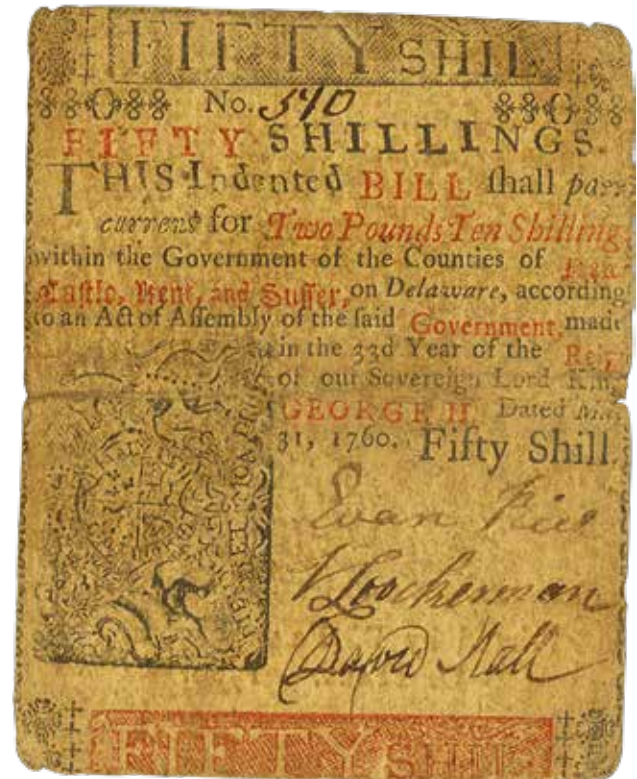 FIFTY SHIL
No. 540
FIFTY SHILLINGS.
THIS Indented BILL shall pass
current for Two Pounds Ten Shillings
within the Government of the Counties of New-
Castle, Kent, and Sussex, on Delaware, according
to an Act of Assembly of the said Government, made
in the 33d Year of the Reign
of our Sovereign Lord King
GEORGE II. Dated May
31, 1760. Fifty Shill.
Evan Rice
V Loockerman
David Hall
FIFTY SHIL